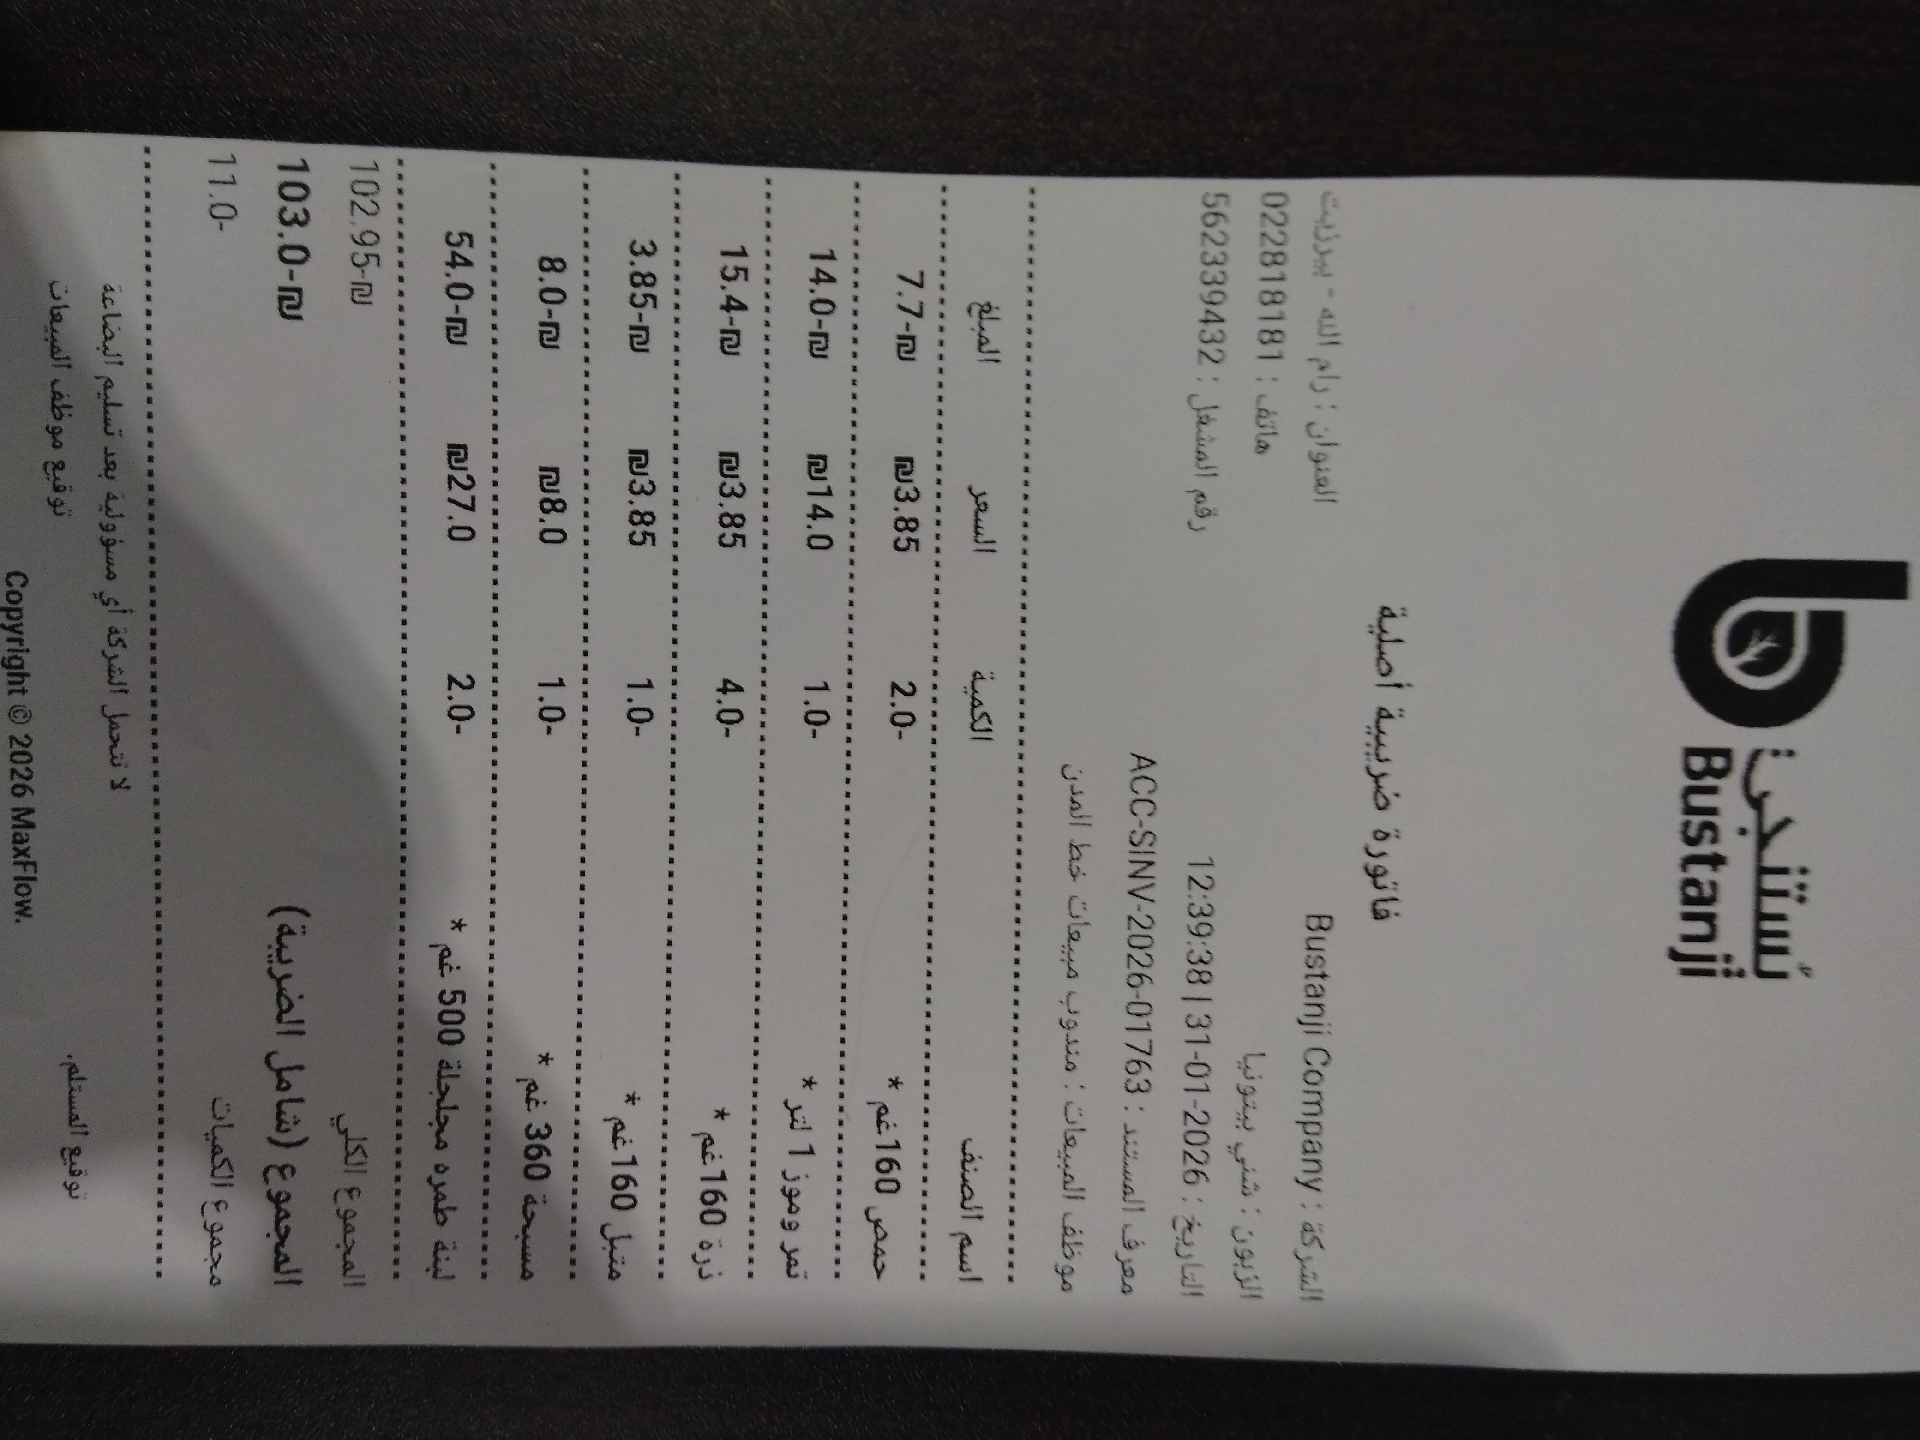 بُستنجي
Bustanji
فاتورة ضريبية أصلية
الشركة : Bustanji Company
العنوان : رام الله - بيرزيت
الزبون : شني بيتونيا
هاتف : 022818181
التاريخ : 2026-01-31 | 12:39:38
رقم المشغل : 562339432
معرف المستند : ACC-SINV-2026-01763
موظف المبيعات : مندوب مبيعات خط المدن
اسم الصنف الكمية السعر المبلغ
حمص 160غم * 2.0- ₪3.85 7.7-₪
تمر وموز 1 لتر * 1.0- ₪14.0 14.0-₪
ذرة 160غم * 4.0- ₪3.85 15.4-₪
متبل 160غم * 1.0- ₪3.85 3.85-₪
مسبحة 360 غم * 1.0- ₪8.0 8.0-₪
لبنة طمره مجلجلة 500 غم * 2.0- ₪27.0 54.0-₪
المجموع الكلي 102.95-₪
المجموع (شامل الضريبة) 103.0-₪
مجموع الكميات 11.0-
لا تتحمل الشركة أي مسؤولية بعد تسليم البضاعة
توقيع المستلم. توقيع موظف المبيعات
Copyright © 2026 MaxFlow.